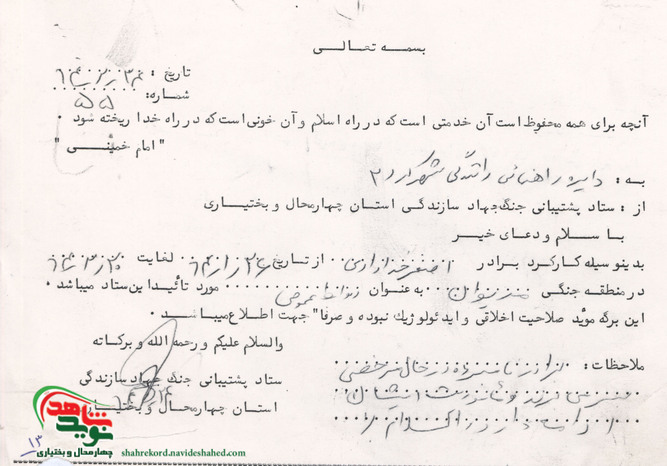 بسمه تعالی
تاریخ :
شماره: ۵۵
آنچه برای همه محفوظ است آن خدمتی است که در راه اسلام و آن خونی است که در راه خدا ریخته شود .
"امام خمینی"
به : دایره راهنمائی رانندگی شهرکرد ۲
از : ستاد پشتیبانی جنگ جهاد سازندگی استان چهارمحال و بختیاری
با سلام و دعای خیر
بدینوسیله کارکرد برادر اصغر خدادادی از تاریخ لغایت
در منطقه جنگی مریوان به عنوان مورد تأئید این ستاد میباشد .
این برگه مؤید صلاحیت اخلاقی و ایدئولوژیک نبوده و صرفا" جهت اطلاع میباشد .
والسلام علیکم و رحمه الله و برکاته
ستاد پشتیبانی جنگ جهاد سازندگی
استان چهارمحال و بختیاری
ملاحظات :
نوید شاهد
چهارمحال و بختیاری
shahrekord.navideshahed.com
۱۳